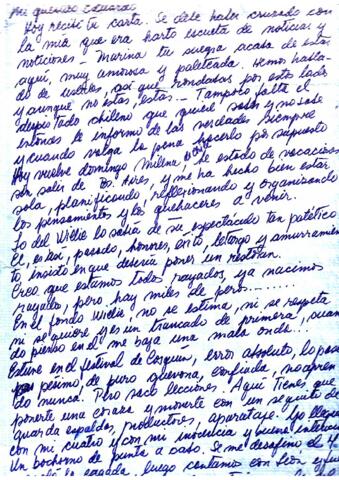 Mi querido Eduardo:
Hoy recibí tu carta. Se debe haber cruzado con
la mía que era harto escueta de noticias y
noticiones – Marina tu suegra acaba de estar
aquí, muy amorosa y paleteada. Hemos habla-
do de ustedes, así que rondados por este lado
y aunque no estas, estas – Tampoco falta el
despistado chileno que quiere saber y no sabe
entonces le informo de las verdades siempre
y cuando valga la pena hacerlo por supuesto
Hoy vuelve domingo Milena de estado de vacaciones
ser salir de Bs. Aires, y me ha hecho bien estar
sola, planificando, reflexionando y organizando
los pensamientos y los quehaceres a venir.
Lo del Willie lo sabía de su espectáculo tan patético
El, estos, pasado, honores, exito, letargo y amurramiento
te insisto en que debería poner un restoran.
Creo que estamos todos rayados, ya nacimos
rayados, pero hay miles de pero........
En el fondo Willie, no se estima, ni se respeta
ni se quiere y es un trancado de primera, cuan
do pienso en el me baja una mala onda...
Estuve en el festival de Cosquín, error absoluto, lo pasé
pesimo, de puro quevona, confiada, no apren
do nunca. Pero sacó lecciones. Aquí tienes que
ponerte una coraza y moverte con un sequito de
guarda espaldas, productores, aparataje. Yo llegué
con mi cuatro y con mi inocencia y buena intención
Un bochorno de punta a cabo. Se me desafinó el 4
la cagada, luego cantamos con León y